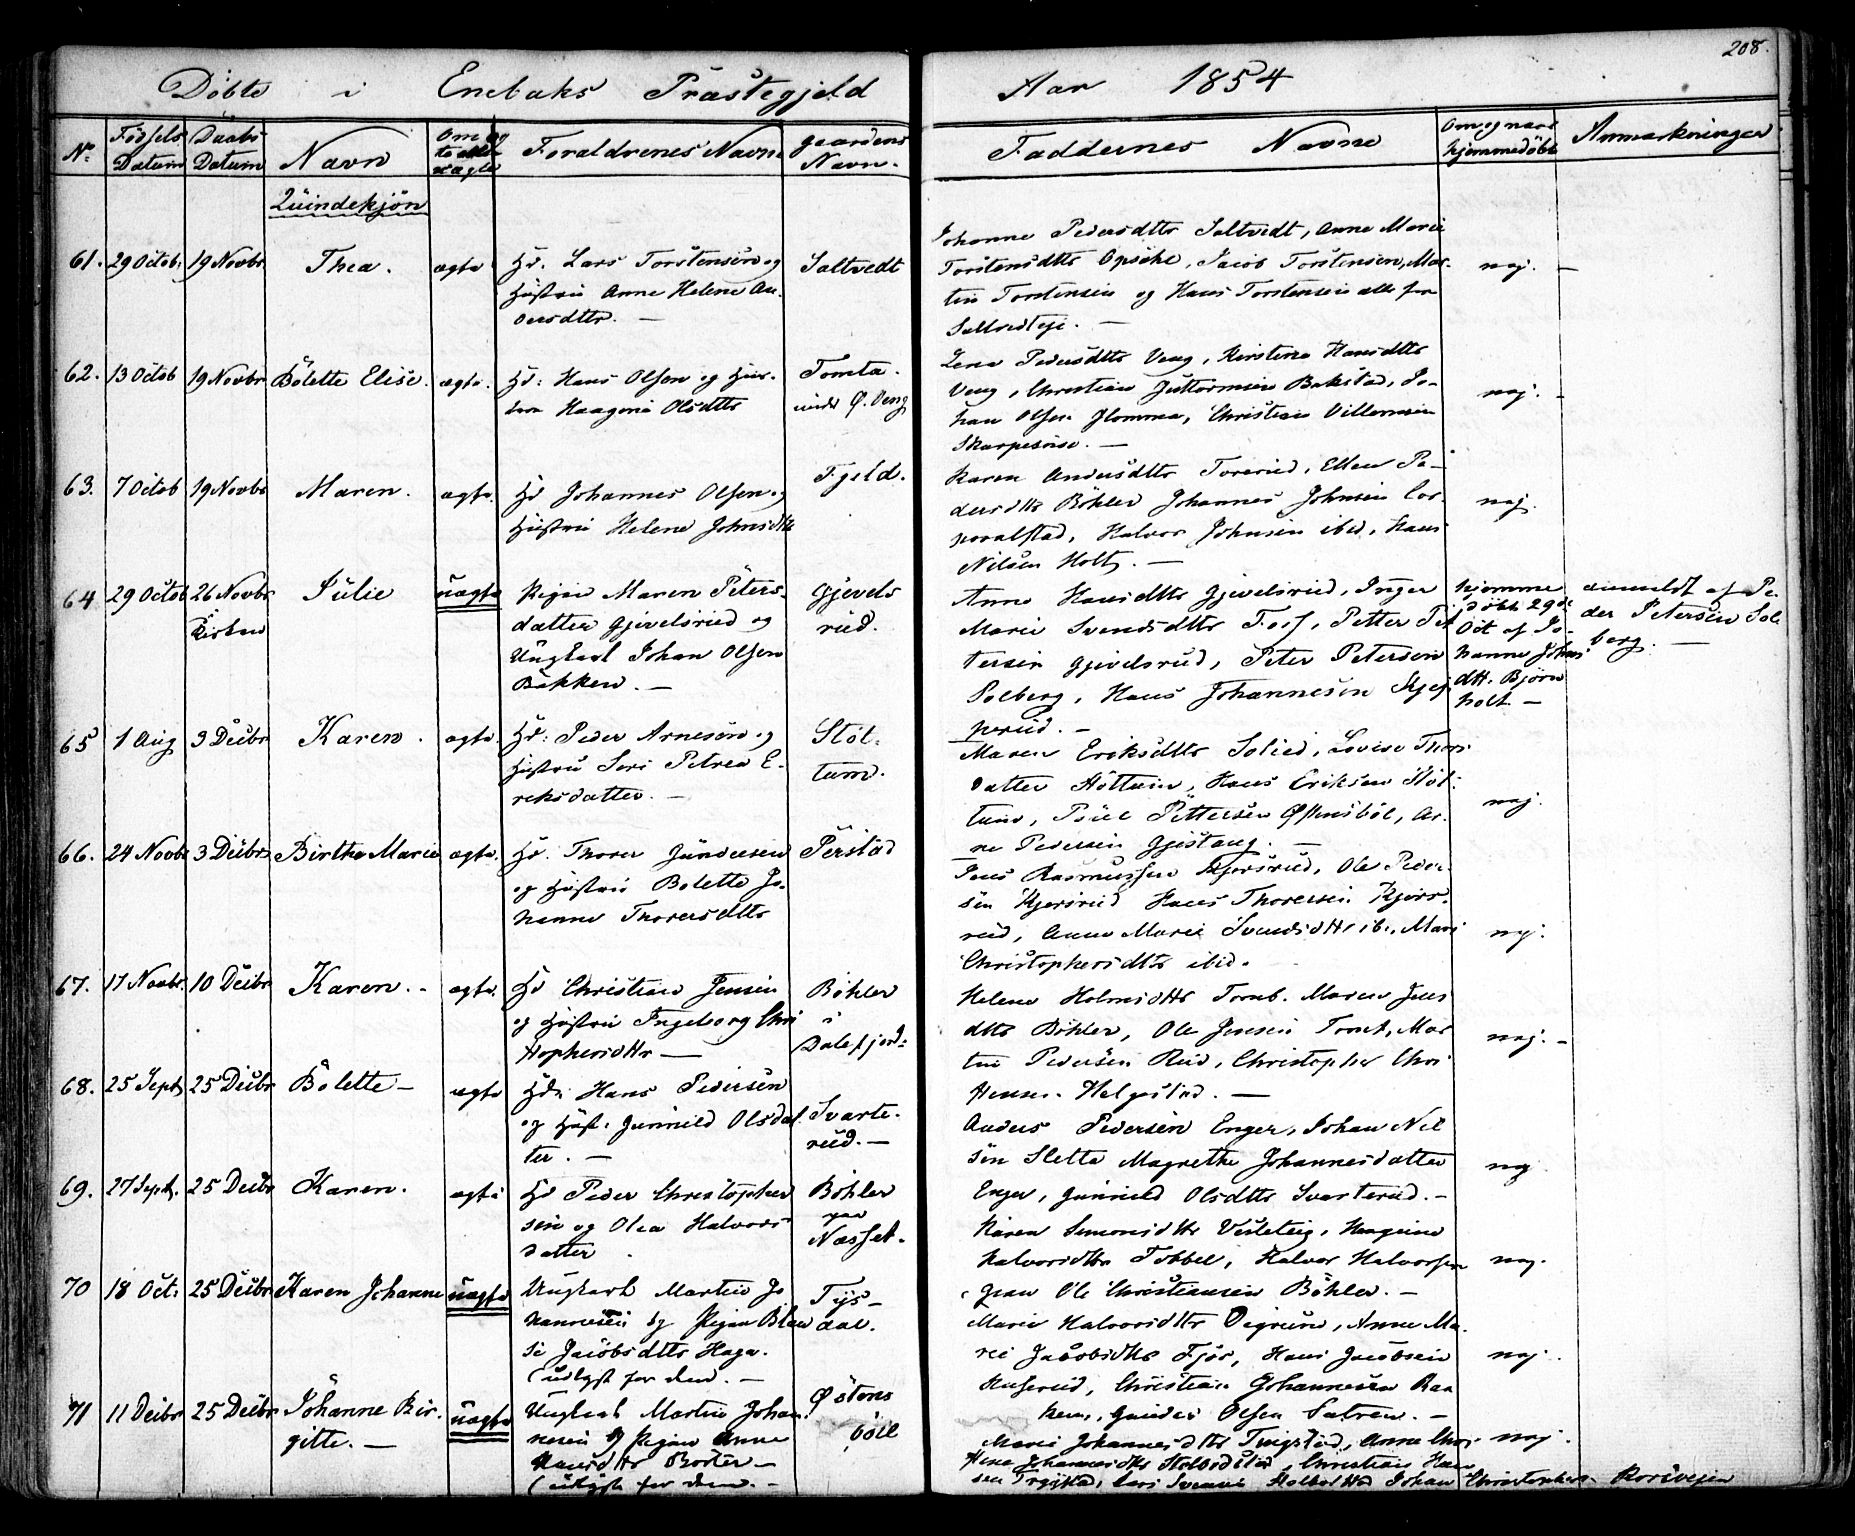 208.
Döbte i Enebaks Præstegjeld Aar 1854
No. Födsels Datum Daabs Datum Navn Om ægte eller uægte Forældrenes Navne Gaardens Navn. Faddernes Navne Om og naar hjemmedöbt Anmærkninger
Quindekjön
61. 29 Octob. 19 Novbr Thea. ægte Hd. Lars Torstensen og Saltvedt
Hustru Anne Helene An-
dersdttr. —
Johanne Pedersdttr Saltvedt, Anne Marie
Torstensdttr Opsche, Jacob Torstensen, Mar-
tin Torstensen og Hans Torstensen alle fra
Saltvedteje. —
nej. —
62. 13 Octob 19 Novbr Bolette Elise. ægte. Hd: Hans Olsen og Hus- Tomta.
tru Haagine Olsdttr under Ø. Veng
Lena Pedersdttr Veng, Kirstine Hansdttr
Veng, Christian Guttormsen Bakstad, Jo-
han Olsen Flomma, Christian Villumsen
Skarpesnoe. —
nej. -
63. 7 Octob 19 Novbr Maren. ægte. Hd Johannes Olsen og Fjeld.
Hustru Helene Johnsdttr
Karen Andersdttr Torerud, Ellen Pe-
dersdttr Böhler Johannes Johnsen Cor-
poralstad, Halvor Johnsen ibid, Hans
Nilsen Holt. —
nej.
64 29 Octob 26 Novbr Kirken Julie uægte Pigen Maren Peters- Gjevels
datter Gjevelsrud og rud.
Ungkarl Johan Olsen
Bakken. —
Anne Hansdttr Gjevelsrud, Inger
Marie Svendsdttr Foss, Petter Pet
tersen Gjevelsrud, Peter Petersen
Solberg, Hans Johannesen Skjep
perud. —
hjemme
döbt 29de
Oct af Jo-
hanne Johns
dtt. Björn
holt. —
anmeldt af Pe-
der Petersen Sol
berg. —
65 1 Aug 3 Decbr Karen. ægte. Hd: Peder Arnesen og Stöt-
Hustru Siri Petrea E- tum.
riksdatter. —
Maren Eriksdttr Solied, Lovise Thors
datter Stöttum, Hans Eriksen Stöt-
tum, Poul Pettersen Østensböl, Ar-
ne Pedersen Gjestang. —
nej.
66. 24 Novbr 3 Decbr Birthe Marie ægte. Hd. Thorer Gundersen Perstad
og Hustru Bolette Jo-
hanne Thorersdttr
Jens Rasmussen Kjersrud, Ole Peder-
sen Kjersrud Hans Thorersen Kjers-
rud, Anne Marie Svendsdttr ib., Mari
Christophersdttr ibid.
nej.
67. 17 Novbr. 10 Decbr Karen. - ægte. Hd Christian Jensen Böhler
og Hustru Ingeborg Chri i
stophersdttr — Dalefjerd:
Helene Holmsdttr Tomt. Maren Jens
dttr Böhler, Ole Jensen Tomt, Mar
tin Pedersen Rud, Christopher Chri
stensen Helgestad. —
nej. -
68. 25 Sept 25 Decbr Bolette — ægte Hd: Hans Pedersen
og Hust: Gunnild Olsdat Svarte-
ter. — rud. —
Anders Pedersen Enger, Johan Nil
sen Sletta Magrethe Johannesdatter
Enger, Gunnild Olsdttr Svarterud. —
nej
69. 27 Sept. 25 Decbr Karen. ægte Hd Peder Christopher Böhler
sen og Olea Halvors paa
datter. Næsset.
Karen Simonsdttr Vesleteig, Haagine
Halvorsdttr Tobbel, Halvor Halvorsen
Gran Ole Christiansen Böhler. —
nej.
70 18 Oct: 25 Decbr Karen Johanne uægte Ungkarl Martin Jo Tys-
hannesen og Pigen Elen dal.
se Jacobsdttr Haga.
(udlyst for dem. —
Marie Halvorsdttr Degrum, Anne Ma-
rie Jacobsdttr Fjös, Hans Jacobsen
Huserud, Christian Johannesen Bak
ken, Gunder Olsen Sætren. —
nej.
71 11 Decbr 25 Decbr Johanne Bir- uægte Ungkarl Martin Johan Østens
gitte. — nesen og Pigen Anne böll
Hansdttr Börter —
(udlyst for dem. —
Marie Johannesdttr Tangstad, Anne Chri-
stine Johannesdttr Stolbodstad, Christian Han
sen Trykstad, Lars Svenni Holbolstad Johan Christophers. Korsvejen
nej.